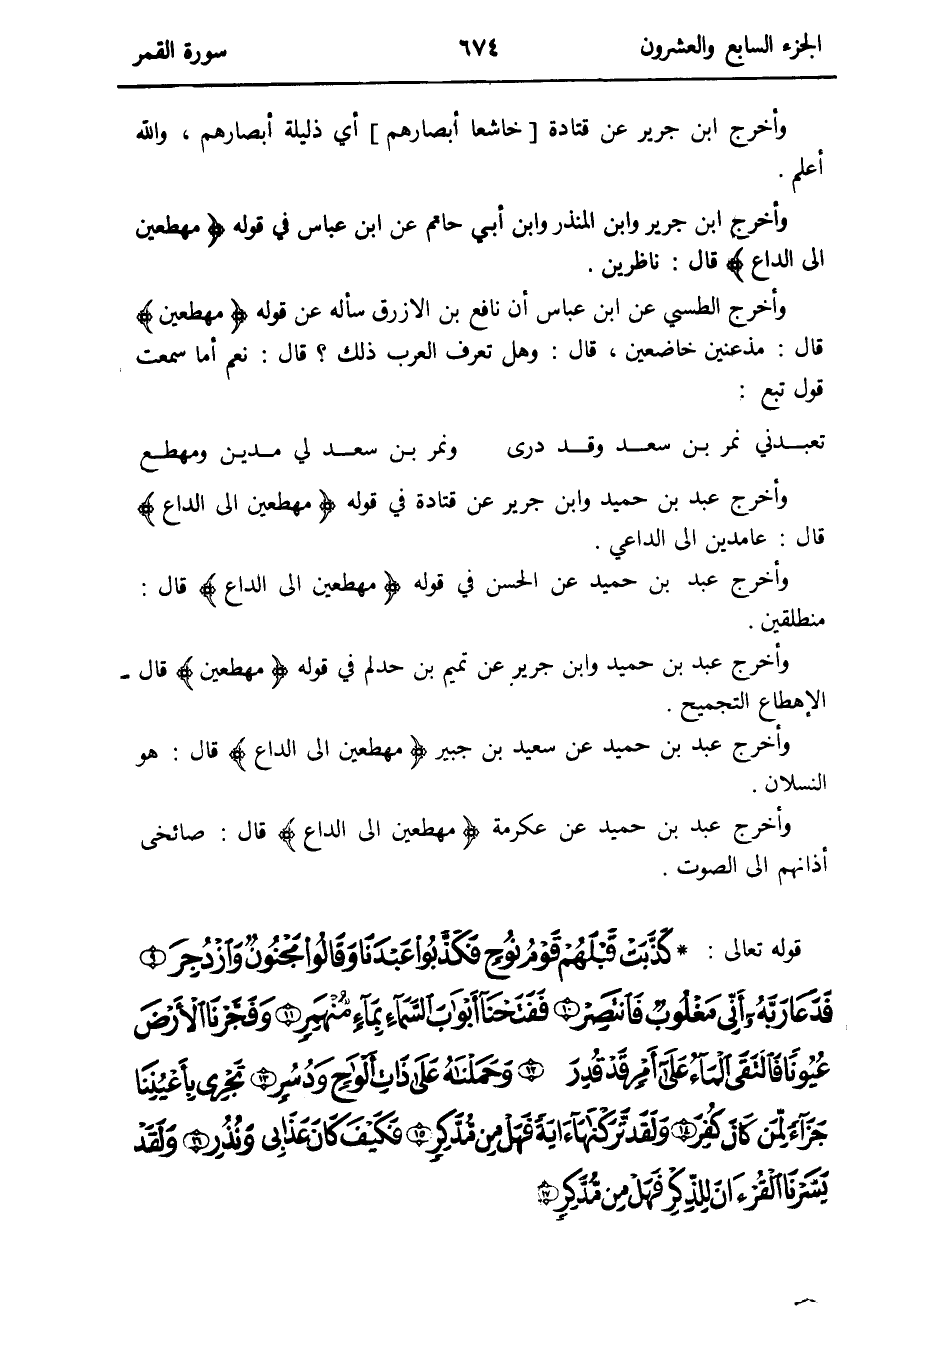 الجزء السابع والعشرون ٦٧٤ سورة القمر
وأخرج ابن جرير عن قتادة [ خاشعا أبصارهم ] أي ذليلة أبصارهم ، والله
أعلم .
وأخرج ابن جرير وابن المنذر وابن أبي حاتم عن ابن عباس في قوله ﴿ مهطعين
الى الداع ﴾ قال : ناظرين .
وأخرج الطستي عن ابن عباس أن نافع بن الازرق سأله عن قوله ﴿ مهطعين ﴾
قال : مذعنين خاضعين ، قال : وهل تعرف العرب ذلك ؟ قال : نعم أما سمعت
قول تبع :
تعبدني نمر بن سعد وقد درى ونمر بن سعد لي مدين ومهطع
وأخرج عبد بن حميد وابن جرير عن قتادة في قوله ﴿ مهطعين الى الداع ﴾
قال : عامدين الى الداعي .
وأخرج عبد بن حميد عن الحسن في قوله ﴿ مهطعين الى الداع ﴾ قال :
منطلقين .
وأخرج عبد بن حميد وابن جرير عن تميم بن حدلم في قوله ﴿ مهطعين ﴾ قال -
الإهطاع التجميح .
وأخرج عبد بن حميد عن سعيد بن جبير ﴿ مهطعين الى الداع ﴾ قال : هو
النسلان .
وأخرج عبد بن حميد عن عكرمة ﴿ مهطعين الى الداع ﴾ قال : صائخى
أذانهم الى الصوت .
قوله تعالى : * كَذَّبَتْ قَبْلَهُمْ قَوْمُ نُوحٍ فَكَذَّبُوا۟ عَبْدَنَا وَقَالُوا۟ مَجْنُونٌ وَٱزْدُجِرَ ۝٩
فَدَعَا رَبَّهُۥٓ أَنِّى مَغْلُوبٌ فَٱنتَصِرْ ۝١٠ فَفَتَحْنَآ أَبْوَٰبَ ٱلسَّمَآءِ بِمَآءٍ مُّنْهَمِرٍ ۝١١ وَفَجَّرْنَا ٱلْأَرْضَ
عُيُونًا فَٱلْتَقَى ٱلْمَآءُ عَلَىٰٓ أَمْرٍ قَدْ قُدِرَ ۝١٢ وَحَمَلْنَٰهُ عَلَىٰ ذَاتِ أَلْوَٰحٍ وَدُسُرٍ ۝١٣ تَجْرِى بِأَعْيُنِنَا
جَزَآءً لِّمَن كَانَ كُفِرَ ۝١٤ وَلَقَد تَّرَكْنَٰهَآ ءَايَةً فَهَلْ مِن مُّدَّكِرٍ ۝١٥ فَكَيْفَ كَانَ عَذَابِى وَنُذُرِ ۝١٦ وَلَقَدْ
يَسَّرْنَا ٱلْقُرْءَانَ لِلذِّكْرِ فَهَلْ مِن مُّدَّكِرٍ ۝١٧